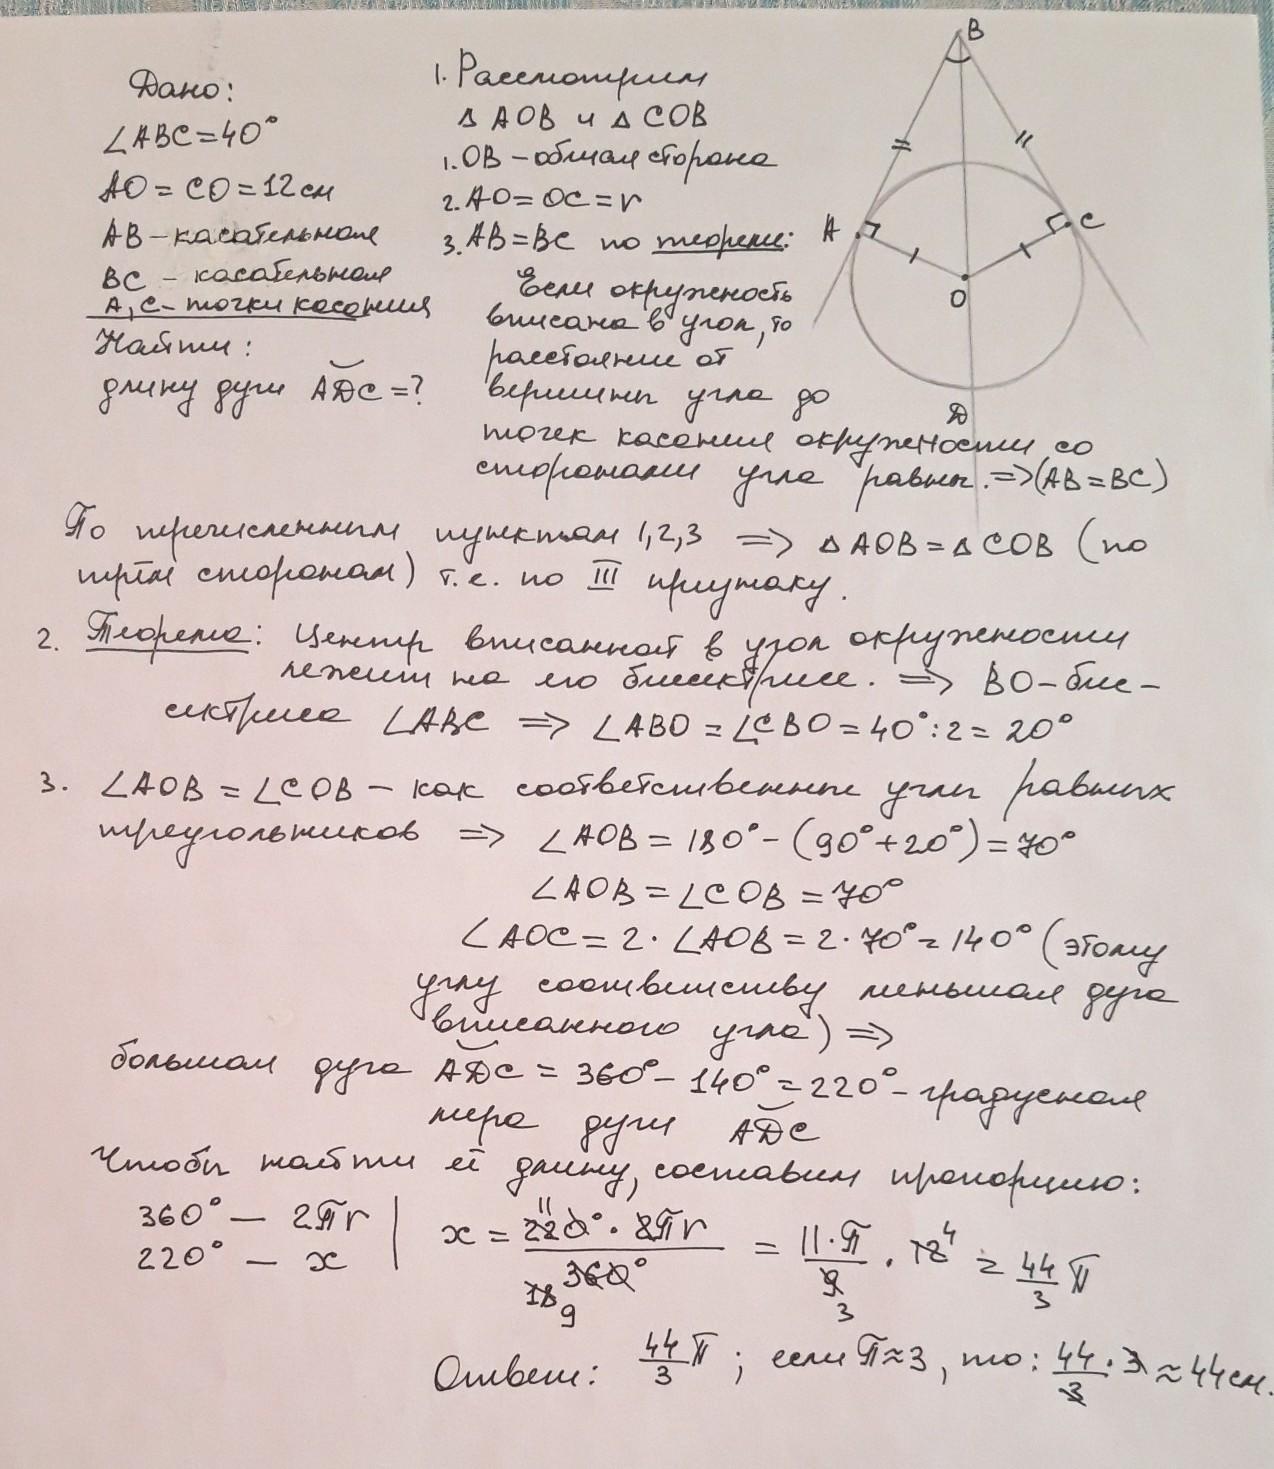 Дано:
∠ABC=40°
AO = CO = 12 см
AB – касательная
BC – касательная
A, C – точки касания
Найти:
длину дуги ADC = ?
1. Рассмотрим
Δ AOB и Δ COB
1. OB – общая сторона
2. AO = OC = r
3. AB = BC по теореме:
Если окружность
вписана в угол, то
расстояние от
вершины угла до
точек касания окружности со
сторонами угла равны. => (AB = BC)
B
A
C
O
D
По перечисленным пунктам 1, 2, 3 => Δ AOB = Δ COB (по
трём сторонам) т.е. по III признаку.
2. Теорема: Центр вписанной в угол окружности
лежит на его биссектрисе. => BO – бис-
сектриса ∠ABC => ∠ABO = ∠CBO = 40° : 2 = 20°
3. ∠AOB = ∠COB – как соответственные углы равных
треугольников => ∠AOB = 180° – (90° + 20°) = 70°
∠AOB = ∠COB = 70°
∠AOC = 2 · ∠AOB = 2 · 70° = 140° (этому
углу соответству меньшая дуга
вписанного угла) =>
большая дуга ADC = 360° – 140° = 220° – градусная
мера дуги ADC
Чтобы найти её длину, составим пропорцию:
360° – 2πr
220° – x
x = 220° · 2πr / 360° = 11 · π / 9 · 12 = 44/3 π
11
18 9
3
4
Ответ: 44/3 π ; если π ≈ 3, то: 44/3 · 3 ≈ 44 см.